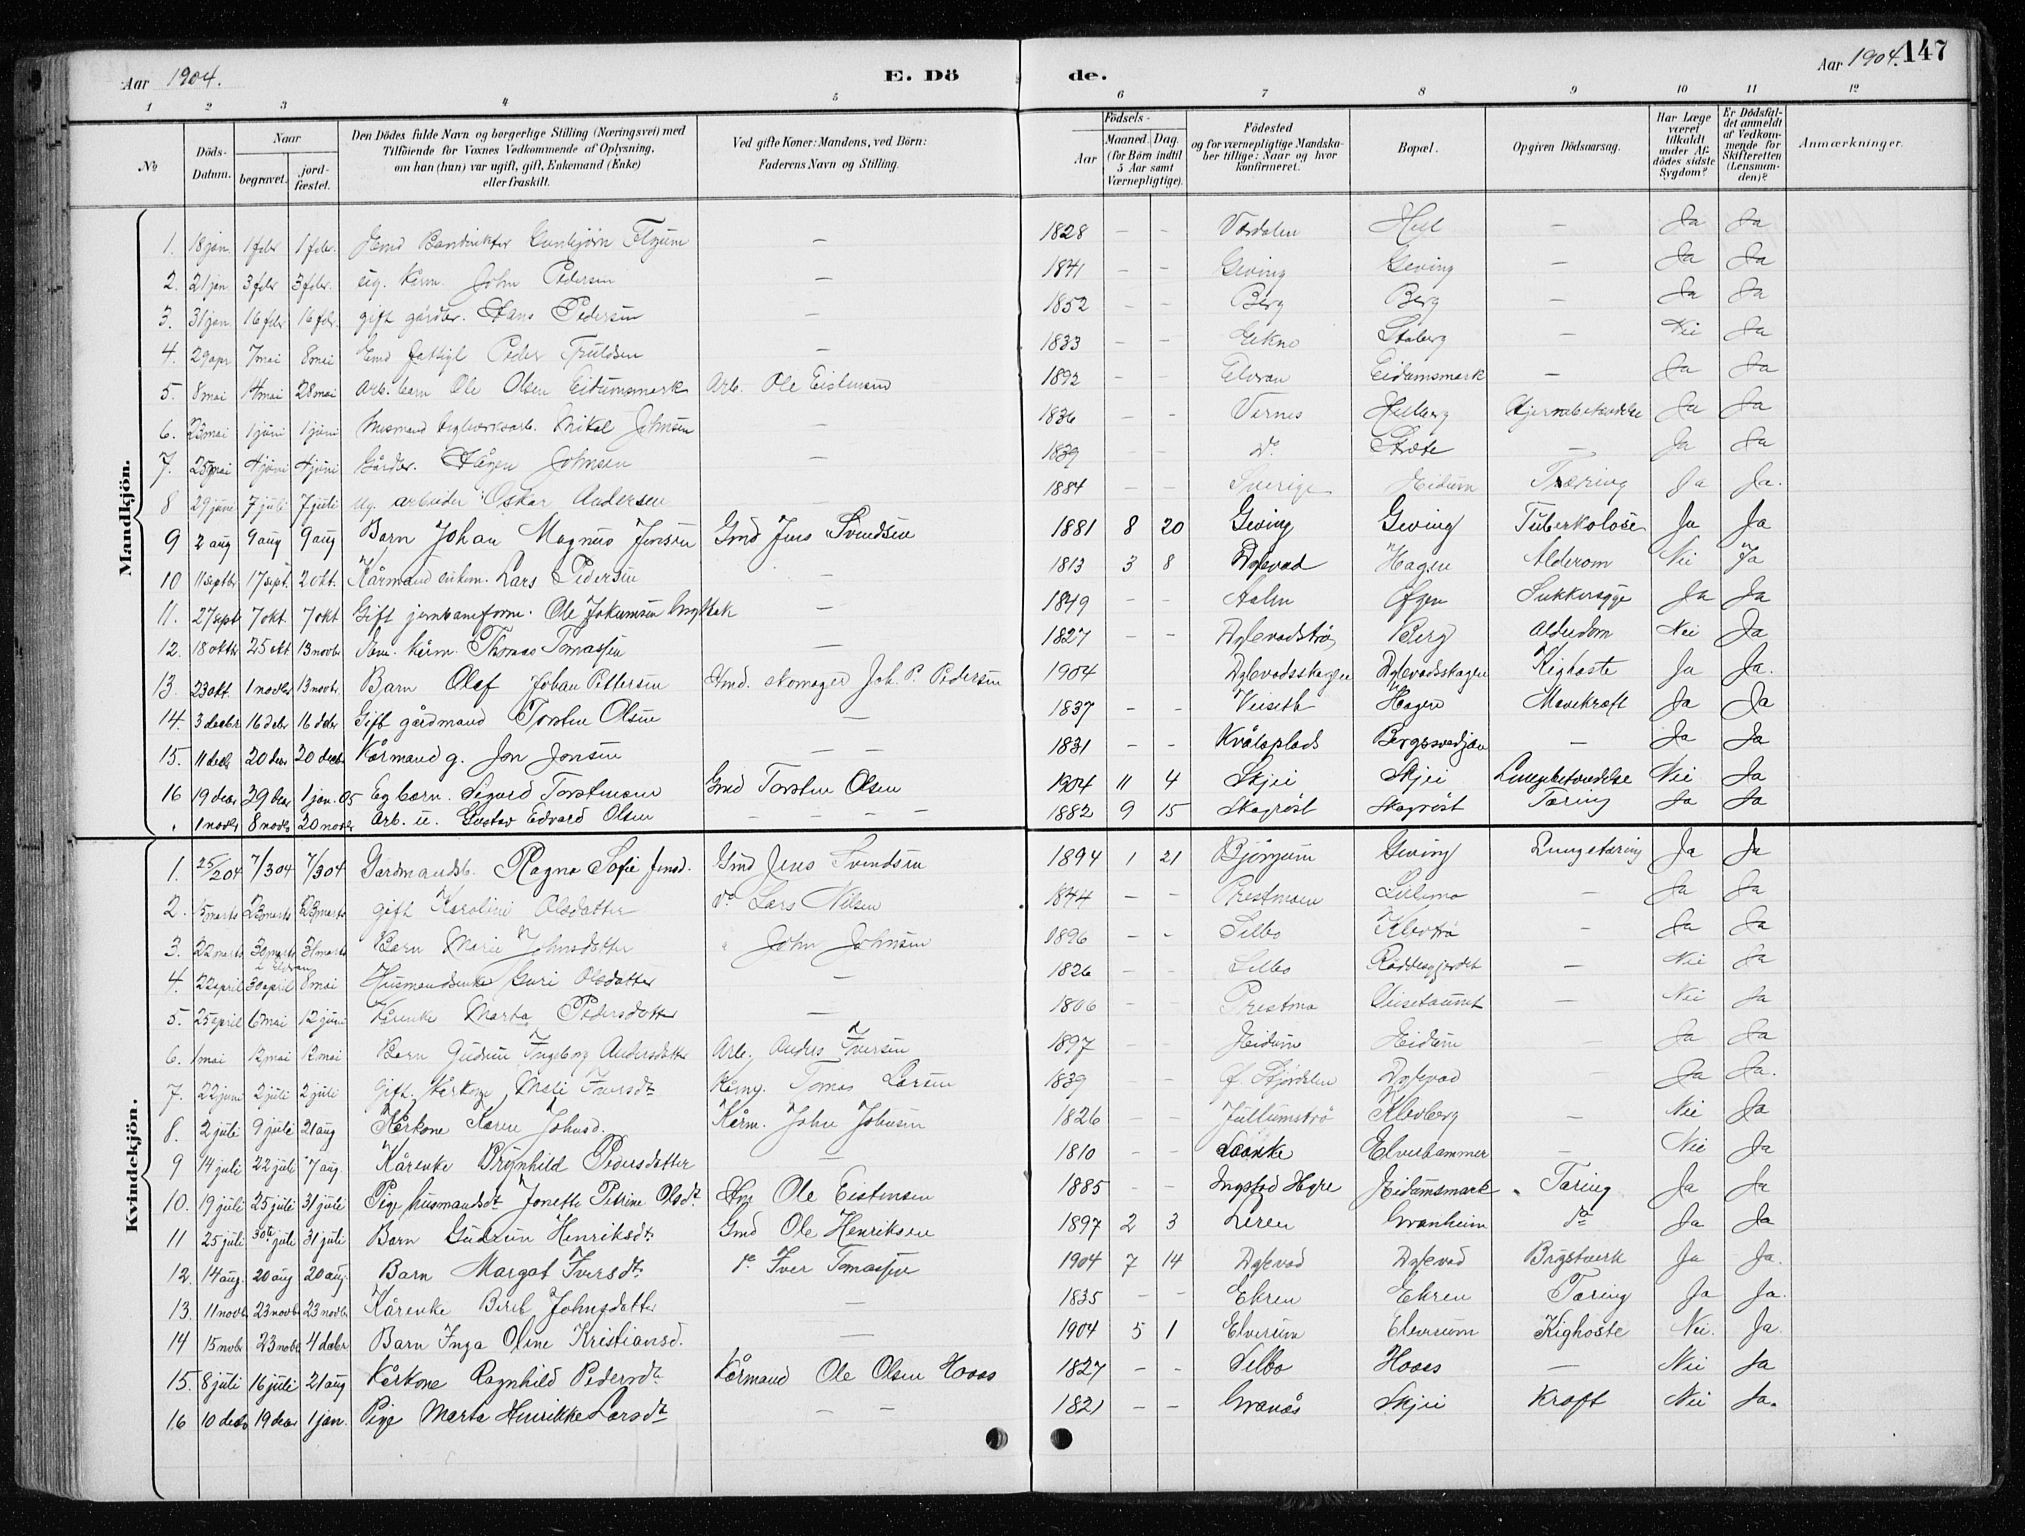 Aar 1904.
E. Dö
de.
Aar 1904.
147
1 2 3 4 5 6 7 8 9 10 11 12
No
Döds-Datum.
Naar
begravet.
jord-fæstet.
Den Dödes fulde Navn og borgerlige Stilling (Næringsvei) med Tilföiende for Voxnes Vedkommende af Oplysning, om han (hun) var ugift, gift, Enkemand (Enke) eller fraskilt.
Ved gifte Koner: Mandens, ved Börn: Faderens Navn og Stilling.
Födsels-
Aar
Maaned. Dag.
(for Börn indtil 5 Aar samt Værnepligtige).
Födested og for værnepligtige Mandskaber tillige: Naar og hvor konfirmeret.
Bopæl.
Opgiven Dödsaarsag.
Har Læge været tilkaldt under Afdödes sidste Sygdom?
Er Dödsfaldet anmeldt af Vedkommende for Skifteretten (Lensmanden)?
Anmærkninger.
Mandkjön.
1. 18 jan. 1 febr 1 febr. Flgum — 1828 — — Værdalen Hell — Ja Ja
2. 21 jan 3 febr 3 febr. John Pedersen — 1841 — — Geving Geving — Ja Ja
3. 31 jan 16 febr 16 febr. gift gårdbr. Hans Pedersen — 1852 — — Berg Berg — Ja Ja
4. 29 apr 7 mai 8 mai Peder Truldsen — 1833 — — Ekne Stoberg — Nei Ja
5. 8 mai 14 mai 28 mai Arb. barn Ole Olsen Eidumsmark Arb. Ole Eistensen 1892 — — Elvran Eidumsmark — Ja Ja
6. 23 mai 1 juni 1 juni Husmand teglverksarb. Mikal Johnsen — 1836 — — Vernes Helberg Hjernebetendelse Ja Ja
7. 25 mai 4 juni 4 juni Gårdbr. Hågen Johnsen — 1839 — — do Stræte — Ja Ja
8 29 juni 7 juli 7 juli ug. arbeider Oskar Andersen 1884 — — Sverige Hidum Tæring Ja Ja.
9 2 aug 9 aug 9 aug Barn Johan Magnus Jensen Gmd Jens Svendsen 1881 8 20 Geving Geving Tuberkolose Ja Ja
10 11 septbr 17 sept. 2 okt. Kårmand enkem. Lars Pedersen — 1813 3 8 Dylevad Hagen Alderdom Nei Ja
11. 27 sept 7 okt 7 okt Gift jernbaneform. Ole Jokumsen — 1849 — — Aalen Øfgen Sukkersyge Ja Ja
12. 18 oktbr 25 okt 13 novbr Thomas Tomassen — 1827 — — Berg Alderdom Nei Ja
13. 23 okt. 1 novbr 13 novbr. Barn Olaf Johan Pettersen Hmd. skomager Joh. P. Pedersen 1904 Kighoste Ja Ja.
14. 3 decbr 16 debr 16 debr Gift gårdmand Torsten Olsen — 1837 — — Veiseth Hagen Mavekræft Ja Ja
15. 11 decbr 20 decbr 20 decbr Kårmand g. Jon Jonsen — — 1831 — — Kvålsplads — Ja Ja
16 19 decbr 29 decbr 1 jan. 05 Eg barn. Sigurd Torstensen Gmd Torsten Olsen 1904 11 4 Skjei Skjei Lungebetændelse Nei Ja
. 1 novbr 8 novbr 20 novbr Arb. u. Gustav Edvard Olsen — — — — 1882 9 15 Skogrøst Skogrøst Tæring Ja Ja
Kvindekjön.
1. 25/2 04 7/3 04 7/3 04 Gardmandsb. Ragna Sofie Jensd. Gmd Jens Svendsen 1894 1 21 Bjørgum Geving Lungetæring Ja Ja
2. 5 marts 23 marts 23 marts gift Karoline Olsdatter do Lars Nilsen 1844 — — Prestmoen — Ja Ja
3. 22 marts 30 marts 31 marts Barn Marie Johnsdatter John Johnsen 1896 — — Selbo — Ja Ja
i Elvran
4. 22 april 30 april 8 mai Husmandsenke Guri Olsdatter — 1826 — — Selbo — Nei Ja
5. 25 april 6 mai 12 juni Kårenke Marta Pedersdatter — 1806 — — Prestmo — Nei Ja
6. 1 mai 12 mai 12 mai Barn Gudrun Ingeborg Andersdatter Arb. Anders Iversen 1897 — — Hidum Hidum — Ja Ja
7. 22 juni 2 juli 2 juli Gift. Kårkone Meli Iversdt. Kårm. Tomas Larsen 1839 — — Ø. Stjørdalen Dylevad Ja Ja.
8. 2 juli 9 juli 21 aug Kårkone Karen Johnsd. Kårm. John Johnsen 1826 — — Klevberg — Nei Ja
9 14 juli 22 juli 7 aug. Kårenke Brynhild Pedersdatter — 1810 — — Lånke Elverhammer — Nei Ja
10. 19 juli 25 juli 31 juli Pige husmandsdt. Jonette Petrine Olsdt. Hm Ole Eistensen 1885 — — Hidumsmark Tæring Ja Ja
11 25 juli 30te juli 31 juli Barn Gudrun Henriksdt. Gmd Ole Henriksen 1897 2 3 Leren Granheim do Ja Ja
12. 14 aug. 20 aug 20 aug. Barn Margot Iversdt. do Iver Tomassen 1904 7 14 Dylevad Dylevad Brystverk Ja Ja.
13. 11 novbr 23 novbr 23 novbr Kårenke Berit Johnsdatter — 1835 — — Ekren Ekren Tæring Ja Ja.
14 15 novbr 23 novbr 4 decbr Barn Inga Oline Kristiansd. — 1904 5 1 Elverum Elverum Kighoste Nei. Ja.
15. 8 juli 16 juli 21 aug Kårkone Ragnhild Pedersdt. Kårmand Ole Olsen Hoaas 1827 — — Selbo Hoaas — Nei Ja
16 10 decbr 19 decbr 1 jan. Pige Marta Henrikke Larsdt. — — 1821 — — Granås Skjei Kræft Nei Ja.